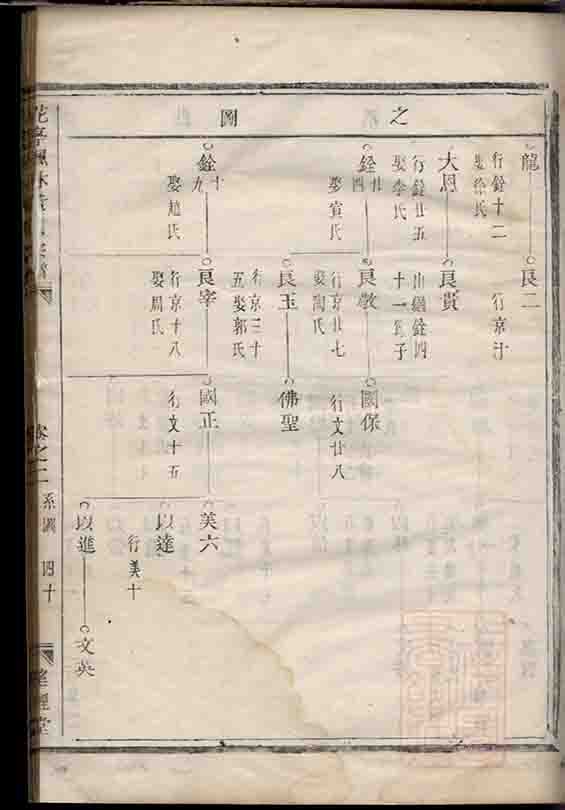 之
圖
龍
行銓十二
娶徐氏
良二
行京汁
大恩
行銓廿五
娶李氏
良貴
出繼銓四
十一為子
銓廿四
娶宣氏
良敎
行京廿七
娶陶氏
國保
行文廿八
良玉
行京三十
五娶郭氏
佛聖
銓十九
娶趙氏
良宰
行京十八
娶周氏
國正
行文十五
美六
以達
行美十
以進
文英
卷之二
系圖
四十